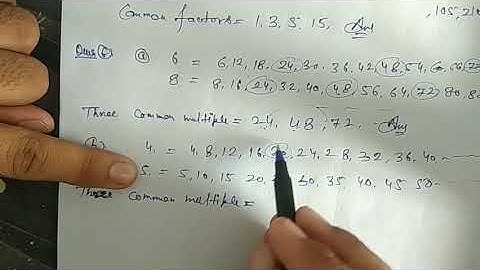 Common factors = 1, 3, 5, 15, Ans
, 105, 210
Ques 6) (a) 6 = 6, 12, 18, 24, 30, 36, 42, 48, 54, 60, 66, 72
8 = 8, 16, 24, 32, 40, 48, 56, 64, 72, 80, 8
Three Common multiple = 24, 48, 72. Ans
(b) 4 = 4, 8, 12, 16, 20, 24, 28, 32, 36, 40
5 = 5, 10, 15 20, 30, 35, 40, 45 50
Three Common multiple =